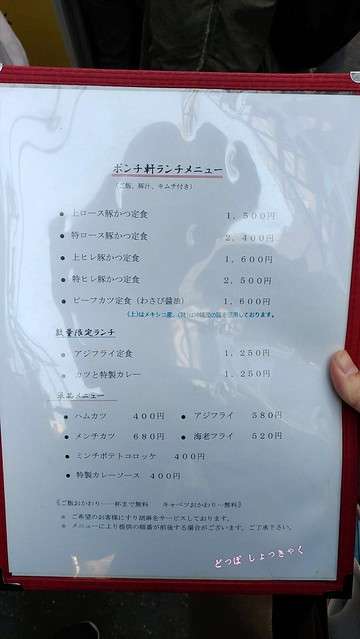 ポンチ軒ランチメニュー
（ご飯、豚汁、キムチ付き）
● 上ロース豚かつ定食 １，５００円
● 特ロース豚かつ定食 ２，４００円
● 上ヒレ豚かつ定食 １，６００円
● 特ヒレ豚かつ定食 ２，５００円
● ビーフカツ定食（わさび醤油） １，６００円
(上)はメキシコ産、(特)は
使用しております。
数量限定ランチ
● アジフライ定食 １，２５０円
● カツと特製カレー １，２５０円
単品メニュー
● ハムカツ ４００円 ● アジフライ ５８０円
● メンチカツ ６８０円 ● 海老フライ ５２０円
● ミンチポテトコロッケ ４００円
● 特製カレーソース ４００円
《ご飯おかわり…一杯まで無料 キャベツおかわり…無料》
※ ご希望のお客様にすり胡麻をサービスしております。
※ メニューにより提供の順番が前後する場合がございます。ご了承下さい。
どつぼ しょっきゃく